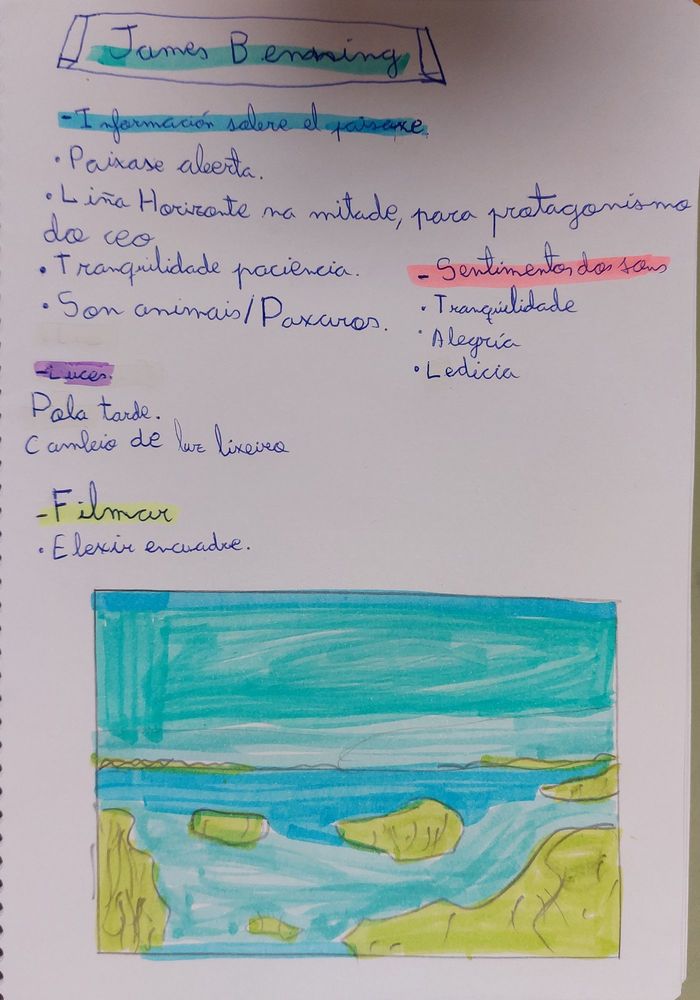 James Benning
- Información sobre el paisaxe.
• Paixase aberta.
• Liña Horizonte na mitade, para protagonismo
do ceo
• Tranquilidade paciencia.
• Son animais/Paxaros.
- Sentimentos dos sons
• Tranquilidade
• Alegría
• Ledicia
- Luces.
Pola tarde.
Cambio de luz lixeiro
- Filmar
• Elexir encuadre.